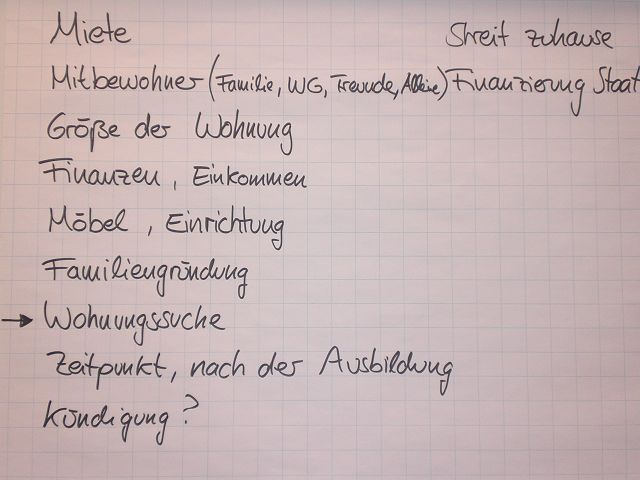 Miete
Streit zuhause
Mitbewohner (Familie, WG, Freunde, Alleine) Finanzierung Staat
Größe der Wohnung
Finanzen, Einkommen
Möbel, Einrichtung
Familiengründung
→ Wohnungssuche
Zeitpunkt, nach der Ausbildung
Kündigung?